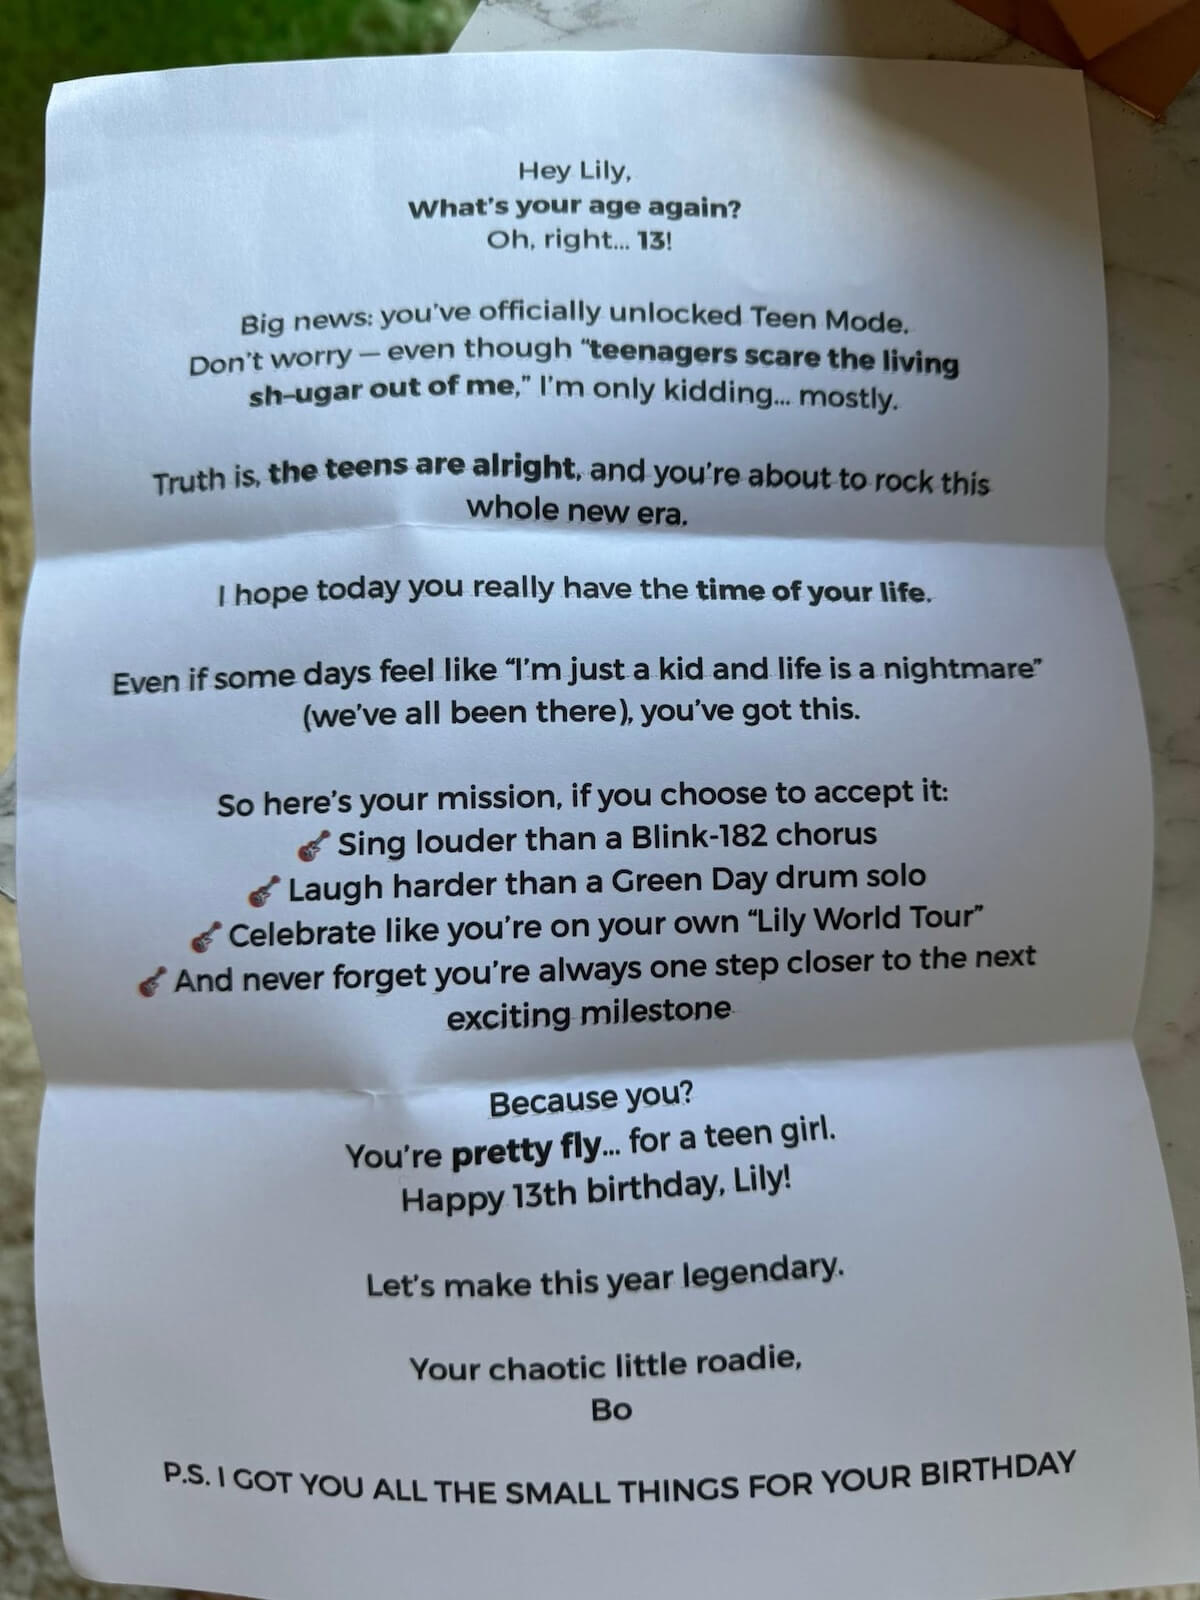 Hey Lily,
What's your age again?
Oh, right... 13!
Big news: you've officially unlocked Teen Mode.
Don't worry — even though "teenagers scare the living
sh-ugar out of me," I'm only kidding... mostly.
Truth is, the teens are alright, and you're about to rock this
whole new era.
I hope today you really have the time of your life.
Even if some days feel like "I'm just a kid and life is a nightmare"
(we've all been there), you've got this.
So here's your mission, if you choose to accept it:
🎸 Sing louder than a Blink-182 chorus
🎸 Laugh harder than a Green Day drum solo
🎸 Celebrate like you're on your own "Lily World Tour"
🎸 And never forget you're always one step closer to the next
exciting milestone
Because you?
You're pretty fly... for a teen girl.
Happy 13th birthday, Lily!
Let's make this year legendary.
Your chaotic little roadie,
Bo
P.S. I GOT YOU ALL THE SMALL THINGS FOR YOUR BIRTHDAY